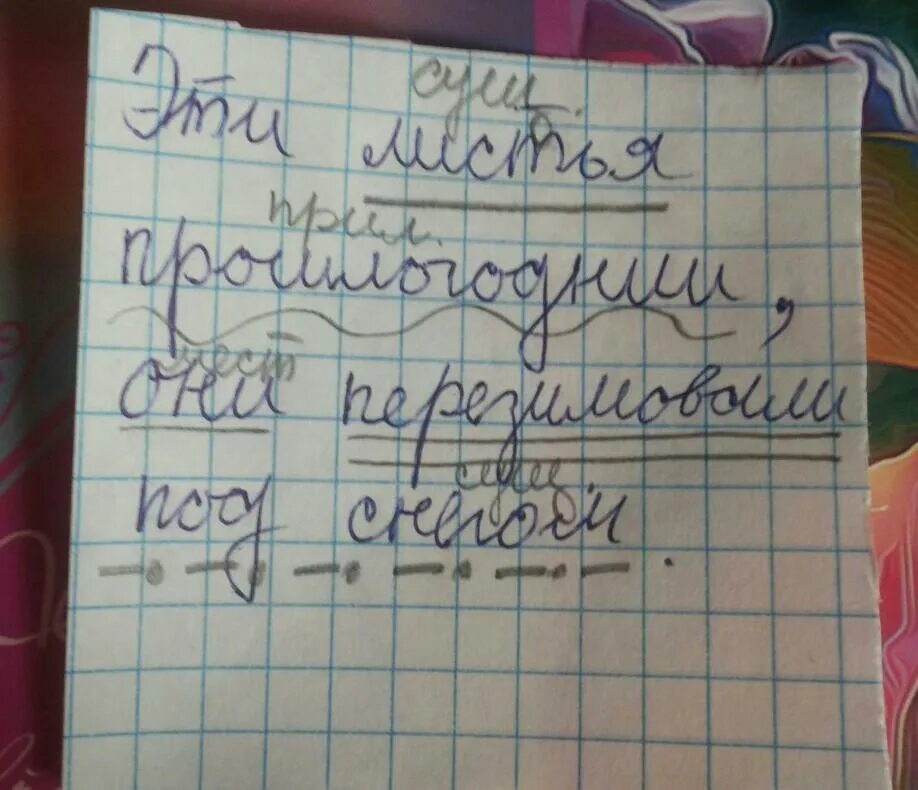 сущ.
Эти листья
прил.
прошлогоднии,
мест
они перезимовали
сущ.
под снегом.